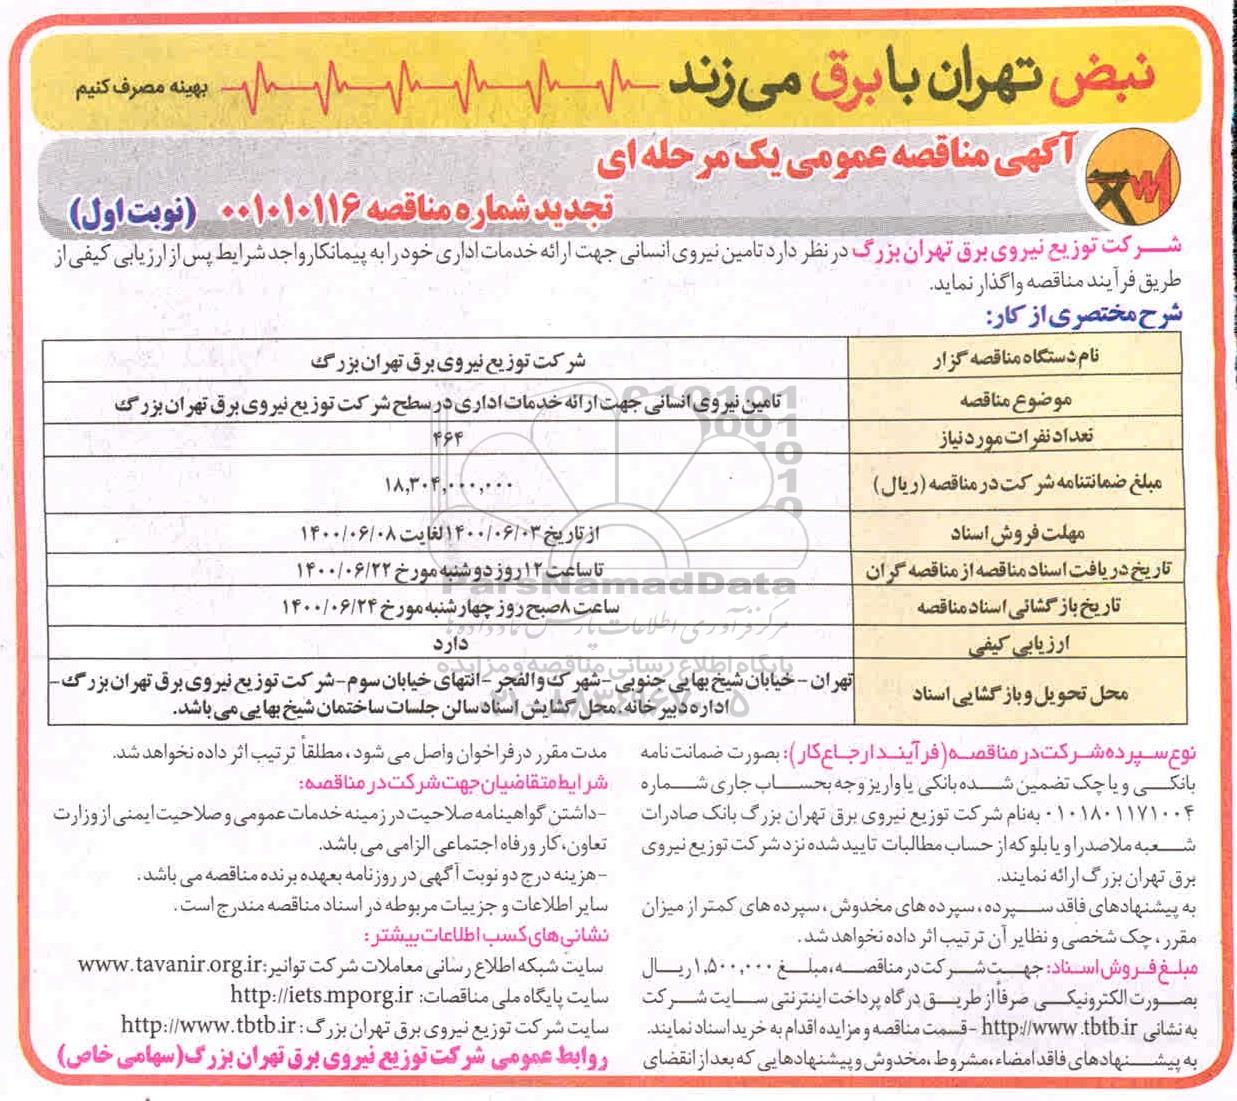 نبض تهران با برق می‌زند
بهینه مصرف کنیم
آگهی مناقصه عمومی یک مرحله ای
تجدید شماره مناقصه ۰۰۱۰۱۰۱۱۶ (نوبت اول)
شرکت توزیع نیروی برق تهران بزرگ در نظر دارد تامین نیروی انسانی جهت ارائه خدمات اداری خود را به پیمانکار واجد شرایط پس از ارزیابی کیفی از
طریق فرآیند مناقصه واگذار نماید.
شرح مختصری از کار:
نام دستگاه مناقصه گزار شرکت توزیع نیروی برق تهران بزرگ
موضوع مناقصه تامین نیروی انسانی جهت ارائه خدمات اداری در سطح شرکت توزیع نیروی برق تهران بزرگ
تعداد نفرات مورد نیاز ۴۶۴
مبلغ ضمانتنامه شرکت در مناقصه (ریال) ۱۸,۳۰۴,۰۰۰,۰۰۰
مهلت فروش اسناد از تاریخ ۱۴۰۰/۰۶/۰۳ لغایت ۱۴۰۰/۰۶/۰۸
تاریخ دریافت اسناد مناقصه از مناقصه گران تا ساعت ۱۲ روز دوشنبه مورخ ۱۴۰۰/۰۶/۲۲
تاریخ بازگشائی اسناد مناقصه ساعت ۸ صبح روز چهارشنبه مورخ ۱۴۰۰/۰۶/۲۴
ارزیابی کیفی دارد
محل تحویل و بازگشایی اسناد تهران - خیابان شیخ بهایی جنوبی - شهرک والفجر - انتهای خیابان سوم - شرکت توزیع نیروی برق تهران بزرگ -
اداره دبیرخانه. محل گشایش اسناد سالن جلسات ساختمان شیخ بهایی می باشد.
ParsNamadData
مرکز فرآوری اطلاعات پارس نماد داده ها
پایگاه اطلاع رسانی مناقصه و مزایده
نوع سپرده شرکت در مناقصه (فرآیند ارجاع کار): بصورت ضمانت نامه
بانکی و یا چک تضمین شده بانکی یا واریز وجه بحساب جاری شماره
۰۱۰۱۸۰۱۱۷۱۰۰۴ به نام شرکت توزیع نیروی برق تهران بزرگ بانک صادرات
شعبه ملاصدرا و یا بلوکه از حساب مطالبات تایید شده نزد شرکت توزیع نیروی
برق تهران بزرگ ارائه نمایند.
به پیشنهادهای فاقد سپرده، سپرده های مخدوش، سپرده های کمتر از میزان
مقرر، چک شخصی و نظایر آن ترتیب اثر داده نخواهد شد.
مبلغ فروش اسناد: جهت شرکت در مناقصه، مبلغ ۱,۵۰۰,۰۰۰ ریال
بصورت الکترونیکی صرفاً از طریق درگاه پرداخت اینترنتی سایت شرکت
به نشانی http://www.tbtb.ir - قسمت مناقصه و مزایده اقدام به خرید اسناد نمایند.
به پیشنهادهای فاقد امضاء، مشروط، مخدوش و پیشنهادهایی که بعد از انقضای
مدت مقرر در فراخوان واصل می شود، مطلقاً ترتیب اثر داده نخواهد شد.
شرایط متقاضیان جهت شرکت در مناقصه:
-داشتن گواهینامه صلاحیت در زمینه خدمات عمومی و صلاحیت ایمنی از وزارت
تعاون، کار و رفاه اجتماعی الزامی می باشد.
-هزینه درج دو نوبت آگهی در روزنامه بعهده برنده مناقصه می باشد.
سایر اطلاعات و جزییات مربوطه در اسناد مناقصه مندرج است.
نشانی های کسب اطلاعات بیشتر:
سایت شبکه اطلاع رسانی معاملات شرکت توانیر: www.tavanir.org.ir
سایت پایگاه ملی مناقصات: http://iets.mporg.ir
سایت شرکت توزیع نیروی برق تهران بزرگ: http://www.tbtb.ir
روابط عمومی شرکت توزیع نیروی برق تهران بزرگ (سهامی خاص)